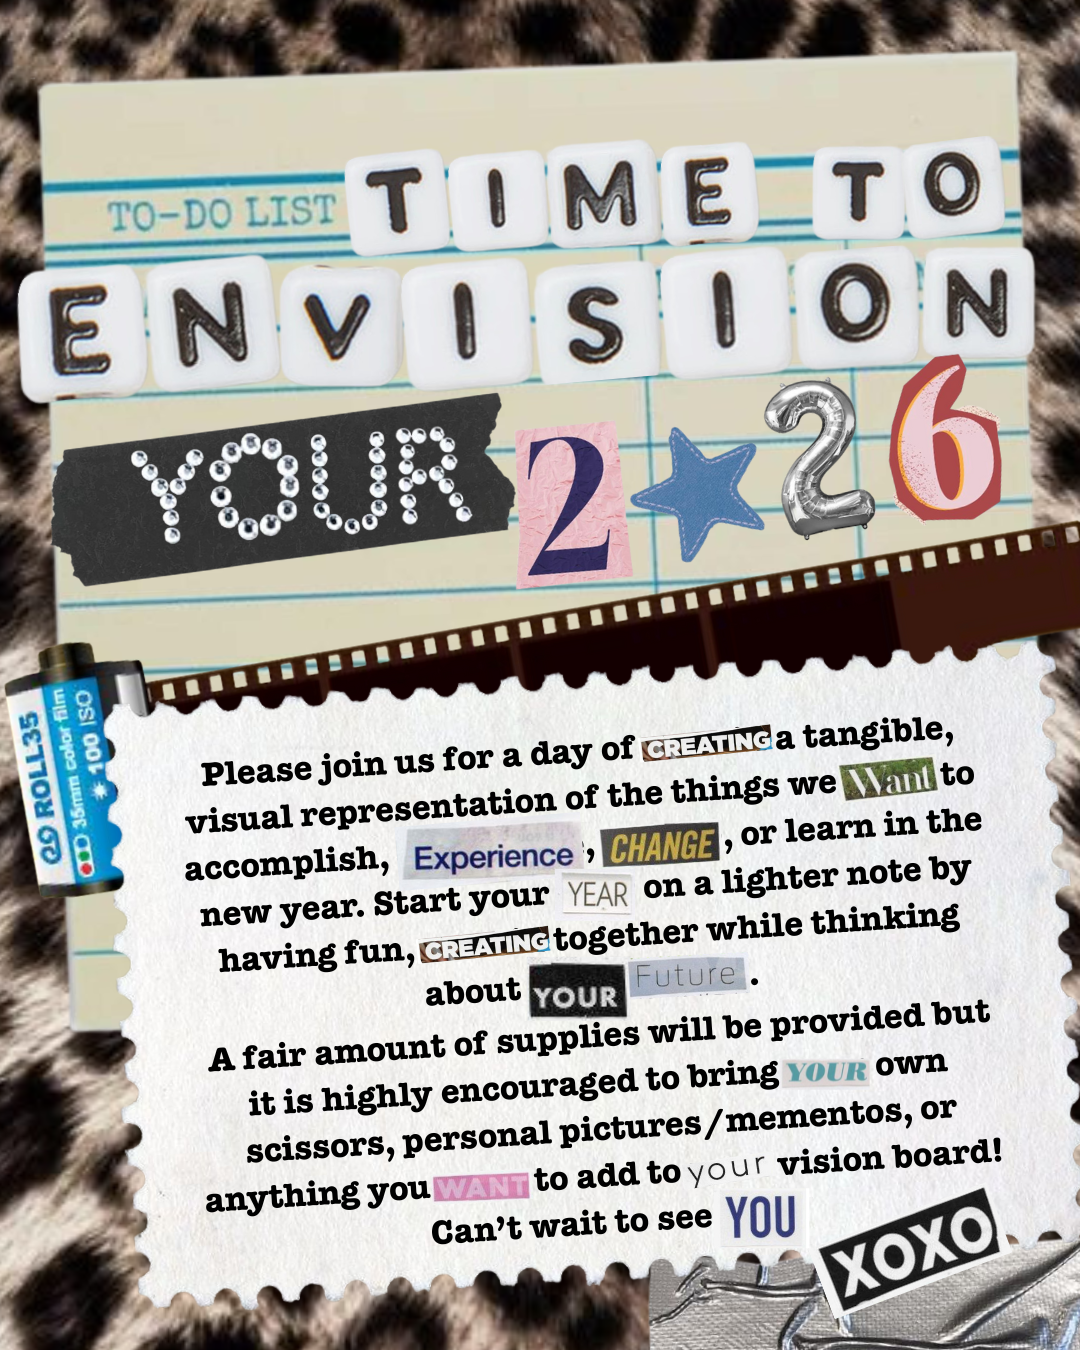 TO-DO LIST
TIME TO
ENVISION
YOUR 2 26
ROLL35
35mm color film
100 ISO
Please join us for a day of CREATING a tangible,
visual representation of the things we Want to
accomplish, Experience, CHANGE, or learn in the
new year. Start your YEAR on a lighter note by
having fun, CREATING together while thinking
about YOUR Future.
A fair amount of supplies will be provided but
it is highly encouraged to bring YOUR own
scissors, personal pictures/mementos, or
anything you WANT to add to your vision board!
Can't wait to see YOU
XOXO